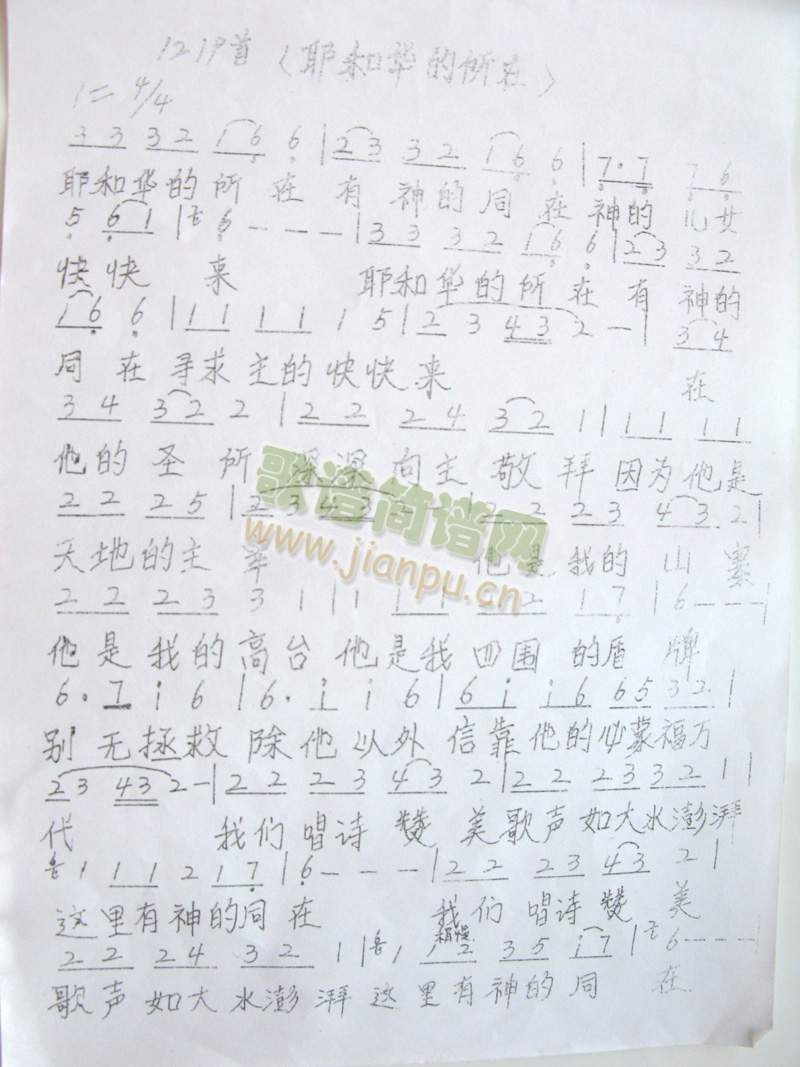 1219首(耶和华的所在)
1= 4/4
3 3 3 2 1 6 6 | 2 3 3 2 1 6 6 | 7· 7 7 6
耶和华的所在有神的同在神的儿女
5 6 1 | 6 - - - | 3 3 3 2 1 6 6 | 2 3 3 2
快快来 耶和华的所在有神的
1 6 6 | 1 1 1 1 1 5 | 2 3 4 3 2 - | 3 4
同在寻求主的快快来 在
3 4 3 2 2 | 2 2 2 4 3 2 1 | 1 1 1 1
他的圣所深深向主敬拜因为他是
2 2 2 5 | 2 3 4 3 2 - | 2 2 2 3 4 3 2 |
天地的主宰 他是我的山寨
2 2 2 3 3 1 | 1 1 1 2 1 7 | 6 - - - |
他是我的高台他是我四围的盾牌
6· 7 i 6 | 6· i i 6 | 6 i i 6 6 5 3 2 |
别无拯救除他以外信靠他的必蒙福万
2 3 4 3 2 - | 2 2 2 3 4 3 2 | 2 2 2 3 3 2 1 |
代 我们唱诗赞美歌声如大水澎湃
1 1 1 2 1 7 | 6 - - - | 2 2 2 3 4 3 2 |
这里有神的同在 我们唱诗赞美
稍慢
2 2 2 4 3 2 1 | 1 1 2 3 5 i 7 | 6 - - -
歌声如大水澎湃这里有神的同在
歌谱简谱网
www.jianpu.cn